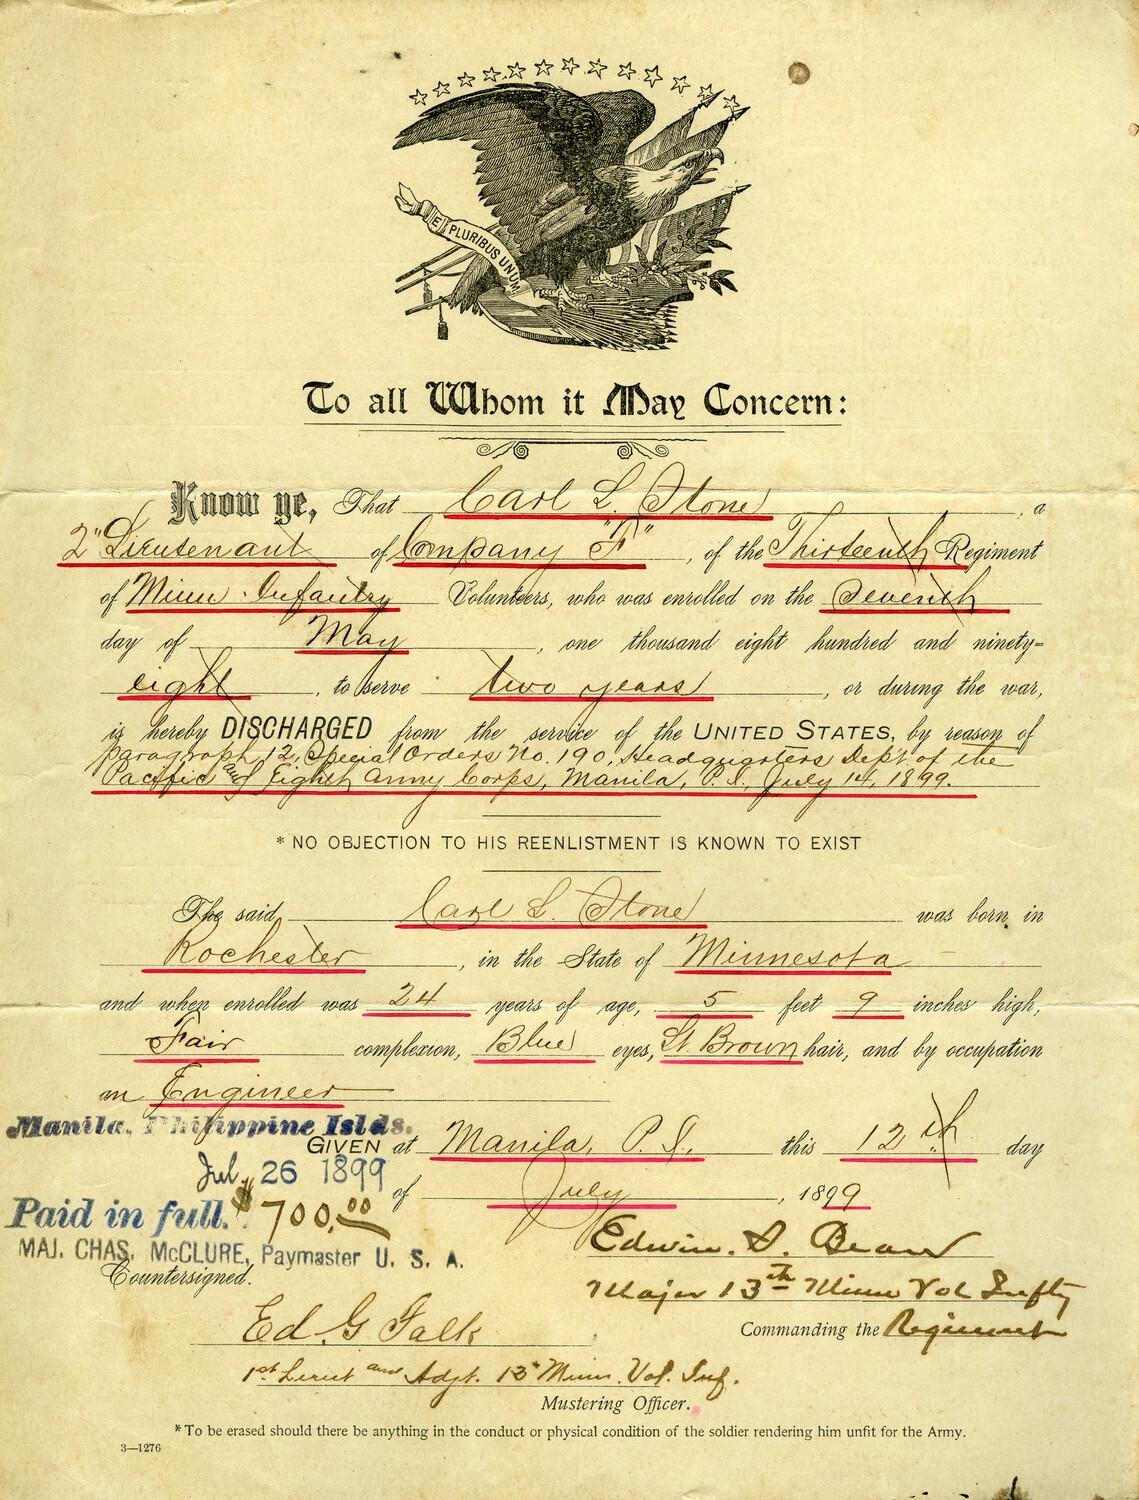 E PLURIBUS UNUM
To all Whom it May Concern:
Know ye, That Carl L. Stone, a
2" Lieutenant of Company "F", of the Thirteenth Regiment
of Minn. Infantry Volunteers, who was enrolled on the Seventh
day of May, one thousand eight hundred and ninety=
eight, to serve two years, or during the war,
is hereby DISCHARGED from the service of the UNITED STATES, by reason of
paragraph 12, Special Orders No. 190, Headquarters Dep't of the
Pacific and Eighth Army Corps, Manila, P.I., July 14, 1899.
* NO OBJECTION TO HIS REENLISTMENT IS KNOWN TO EXIST
The said Carl L. Stone was born in
Rochester, in the State of Minnesota
and when enrolled was 24 years of age, 5 feet 9 inches high,
Fair complexion, Blue eyes, Lt. Brown hair, and by occupation
an Engineer
Manila, Philippine Islds.
GIVEN at Manila, P.I., this 12th day
Jul. 26 1899
of July, 1899
Paid in full. $700.00
MAJ. CHAS. McCLURE, Paymaster U. S. A.
Edwin. S. Bean
Countersigned.
Major 13th Minn Vol Infty
Commanding the Regiment
Ed. G Falk
1st Lieut and Adjt. 13" Minn. Vol. Inf.
Mustering Officer.
* To be erased should there be anything in the conduct or physical condition of the soldier rendering him unfit for the Army.
3—1276